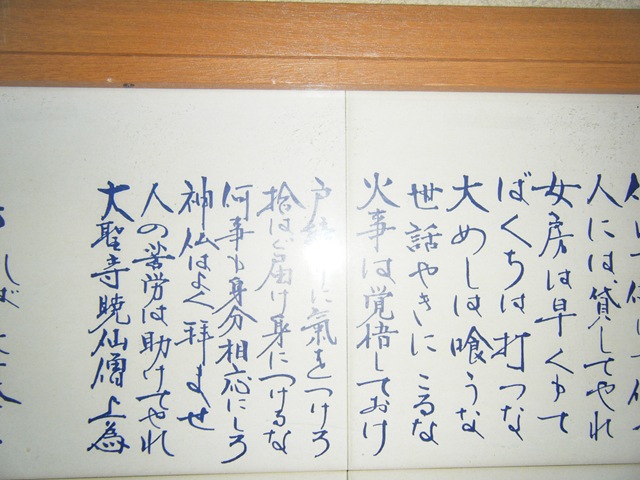 人には貸してやれ
女房は早くもて
ばくちは打つな
大めしは喰うな
世話やきにこるな
火事は覚悟しておけ
戸締りに氣をつけろ
拾はゞ届け身につけるな
何事も身分相応にしろ
神仏はよく拝ませ
人の苦労は助けてやれ
大聖寺暁仙僧上為